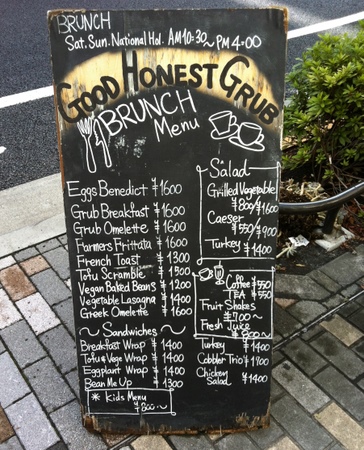 BRUNCH
Sat. Sun. National Hol. AM 10:30~PM 4:00
GOOD HONEST GRUB
BRUNCH
Menu
Eggs Benedict ¥1600
Grub Breakfast ¥1600
Grub Omelette ¥1600
Farmers Frittata ¥1600
French Toast ¥1300
Tofu Scramble ¥1500
Vegan Baked Beans ¥1200
Vegetable Lasagna ¥1400
Greek Omelette ¥1600
~ Sandwiches ~
Breakfast Wrap ¥1400
Tofu & Vege Wrap ¥1400
Eggplant Wrap ¥1400
Bean Me Up ¥1300
* Kids Menu
¥800~
Salad
Grilled Vegetable
¥800/¥1400
Caeser
¥950/¥1600
Turkey ¥1400
Coffee ¥550
TEA ¥550
Fruit Shakes
¥700~
Fresh Juice
¥800~
Turkey ¥1400
Cobbler Trio ¥1700
Chicken
Salad ¥1400